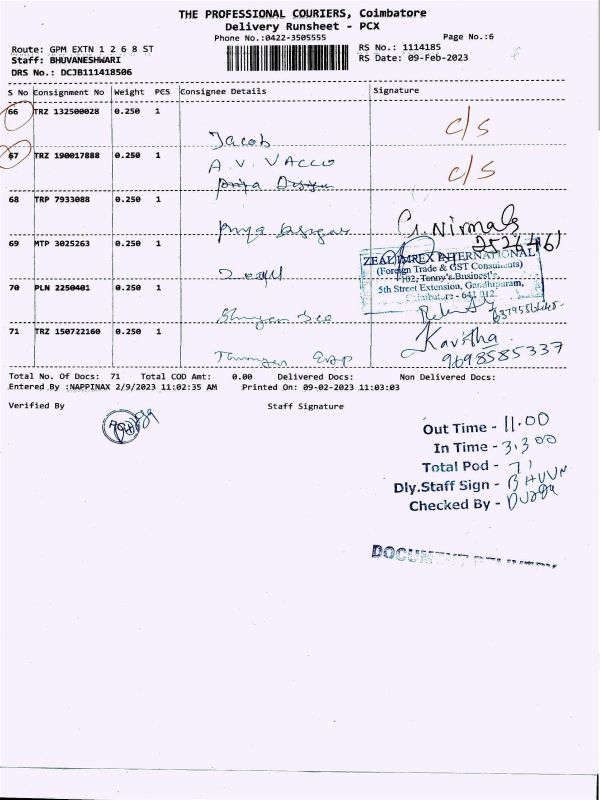 THE PROFESSIONAL COURIERS, Coimbatore
Delivery Runsheet - PCX
Phone No.:0422-3505555
Page No.:6
Route: GPM EXTN 1 2 6 8 ST
RS No.: 1114185
Staff: BHUVANESHWARI
RS Date: 09-Feb-2023
DRS No.: DCJB111418506
S No Consignment No Weight PCS Consignee Details Signature
66 TRZ 132500028 0.250 1 c/s
Jacob
67 TRZ 190017888 0.250 1 A.V. VACCO c/s
68 TRP 7933088 0.250 1
Priya G. Nirmala
69 MTP 3025263 0.250 1
ZEAL IMPEX INTERNATIONAL
(Foreign Trade & GST Consultants)
Zeal
70 PLN 2250401 0.250 1
5th Street Extension, Gandhipuram,
Coimbatore - 641 012.
71 TRZ 150722160 0.250 1 Kavitha
9698585337
Total No. Of Docs: 71 Total COD Amt: 0.00 Delivered Docs: Non Delivered Docs:
Entered By :NAPPINAX 2/9/2023 11:02:35 AM Printed On: 09-02-2023 11:03:03
Verified By Staff Signature
Out Time - 11.00
In Time - 3,300
Total Pod - 71
Dly.Staff Sign - BHUVN
Checked By - Durga
DOCUMENT DELIVERY